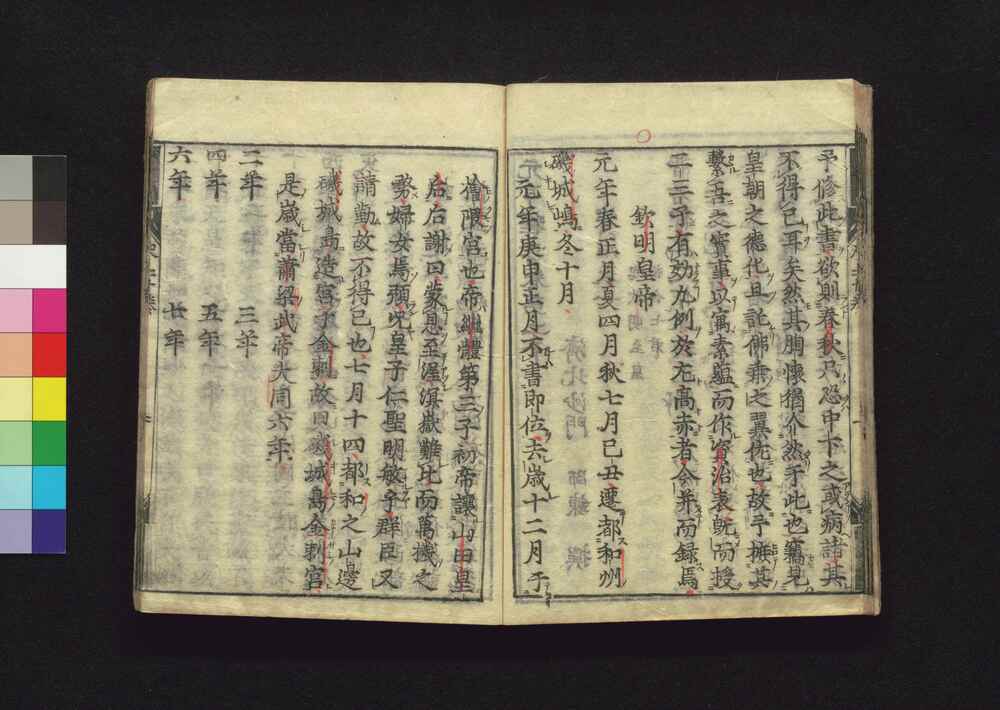 予修此書欲則春秋只恐中下之或病諸其
不得已耳矣然其胸懷猶介然于此也竊見
皇朝之德化且託佛乘之翼佐也故手摭其
繫吾之實事以寓素蘊而作資治表既而授
二三子有効九例於兀高赤者今并而錄焉
欽明皇帝
元年春正月夏四月秋七月己丑遷都和州
磯城嶋冬十月
元年庚申正月不書即位去歲十二月于
檜隈宮也帝繼體第三子初帝讓山田皇
后后謝曰蒙恩至渥溟嶽難比而萬機之
婺婦女焉預况皇子仁聖明敏乎群臣又
請勸故不得已也七月十四都和之山邊
磯城島造宮于金刺故曰磯城島金刺宮
是歲當蕭梁武帝大同六年
二年 三年
四年 五年
六年 七年